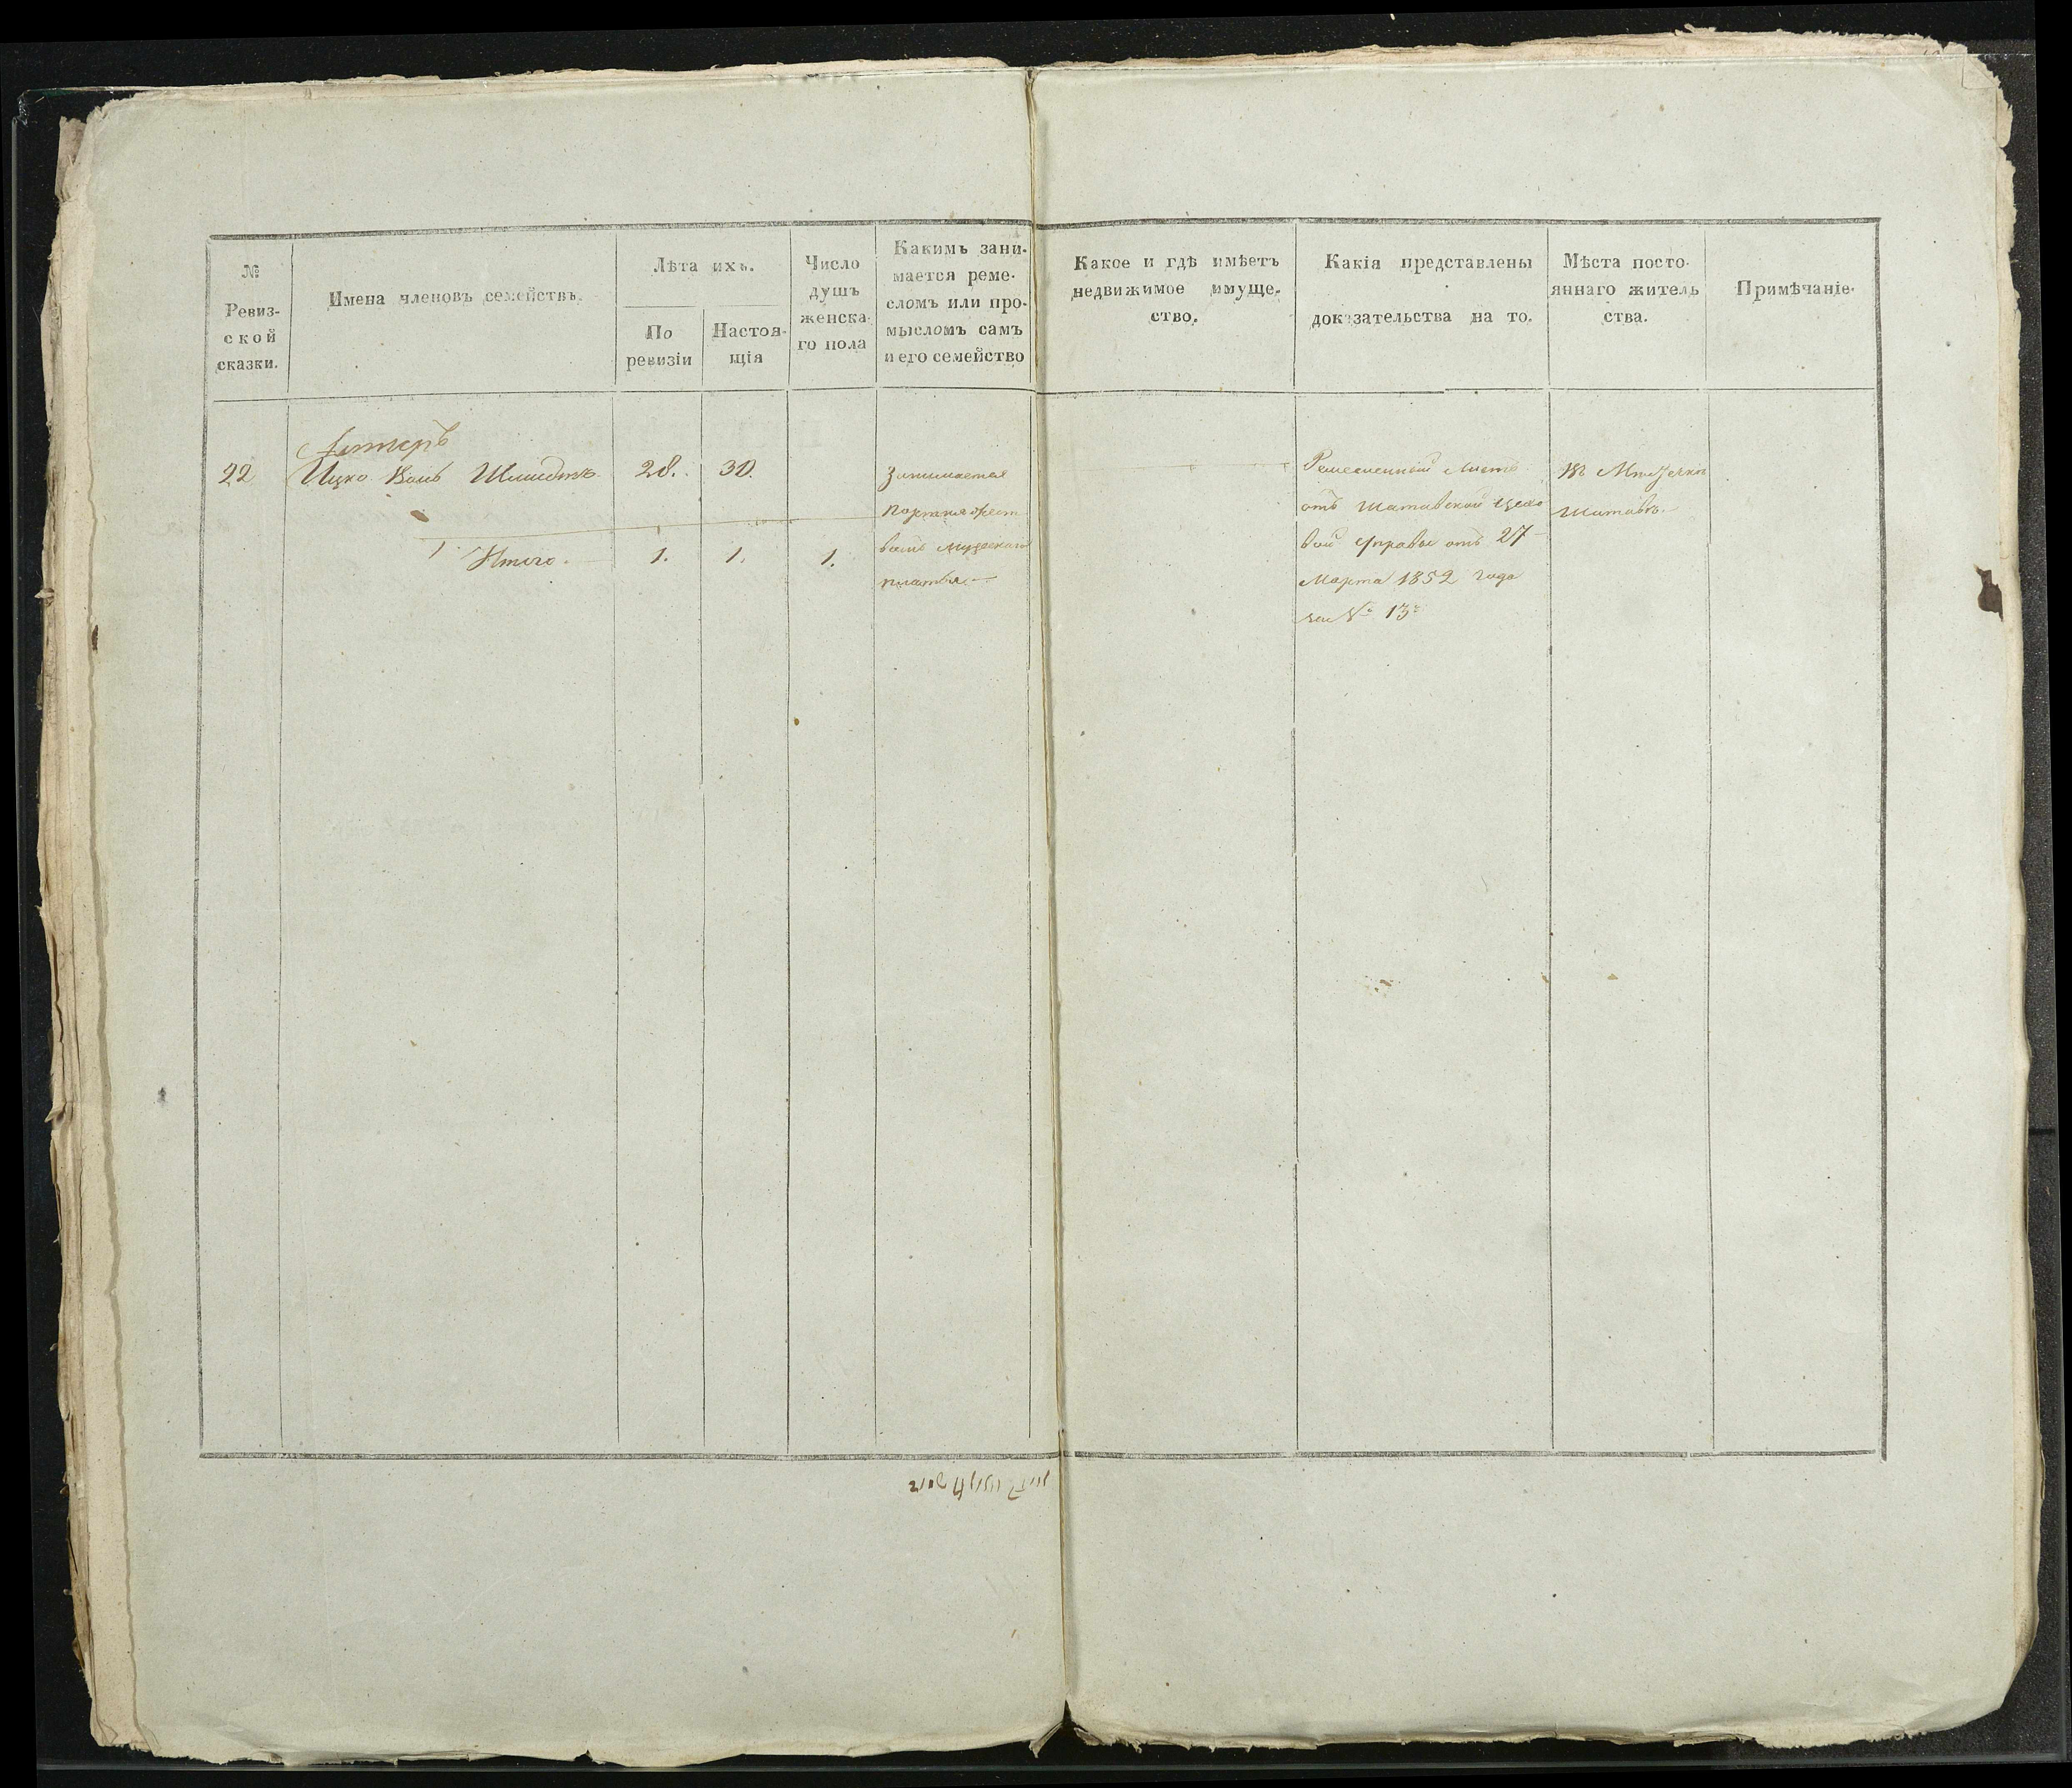 №
Ревиз-
ской
сказки.
Имена членовъ семействъ.
Лѣта ихъ.
По
ревизіи
Настоя-
щія
Число
душъ
женска-
го пола
Какимъ зани-
мается реме-
сломъ или про-
мысломъ самъ
и его семейство
Какое и гдѣ имѣетъ
недвижимое имуще-
ство.
Какія представлены
доказательства на то.
Мѣста посто-
яннаго житель
ства.
Примѣчаніе.
22
Ицко
28.
30.
Занимается
Портняжест
вомъ Мужескаго
платья
Ремесленный Листъ
отъ Шатавской Цехо
вой Управы отъ 27
Марта 1852 года
за № 13
Въ Мѣстечкѣ
Шатавѣ.
1 Итого.
1.
1.
1.